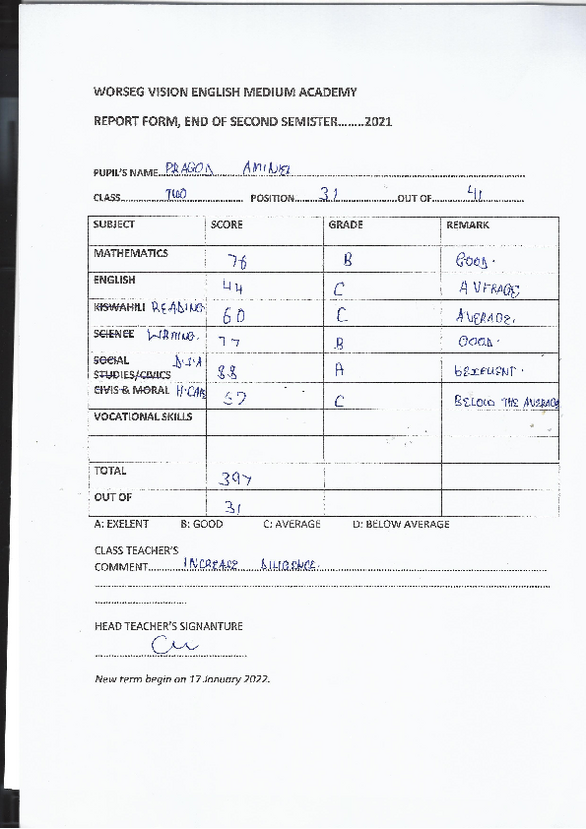 WORSEG VISION ENGLISH MEDIUM ACADEMY
REPORT FORM, END OF SECOND SEMISTER........2021
PUPIL'S NAME PRAGON AMINIEL
CLASS TWO POSITION 31 OUT OF 41
SUBJECT SCORE GRADE REMARK
MATHEMATICS 76 B GOOD.
ENGLISH 44 C AVERAGE
KISWAHILI READING 60 C AVERAGE.
SCIENCE WRITING. 77 B GOOD.
SOCIAL STUDIES/CIVICS 88 A
CIVIS & MORAL C BELOW THE AVERAGE
VOCATIONAL SKILLS
TOTAL 397
OUT OF 31
A: EXELENT B: GOOD C: AVERAGE D: BELOW AVERAGE
CLASS TEACHER'S
COMMENT INCREASE DILIGENCE.
HEAD TEACHER'S SIGNANTURE
New term begin on 17 January 2022.